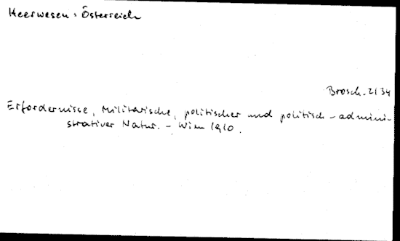 Heerwesen. Österreich
Brosch. 2134
Erfordernisse, Militärische, politischer und politisch-admini-
strativer Natur. - Wien 1910.